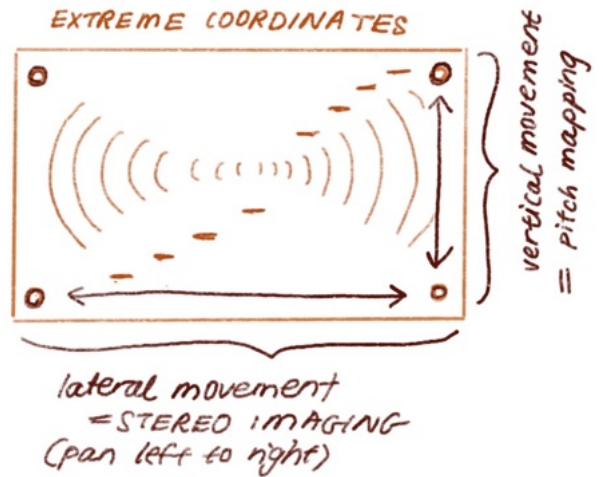 EXTREME COORDINATES
vertical movement
= pitch mapping
lateral movement
= STEREO IMAGING
(pan left to right)